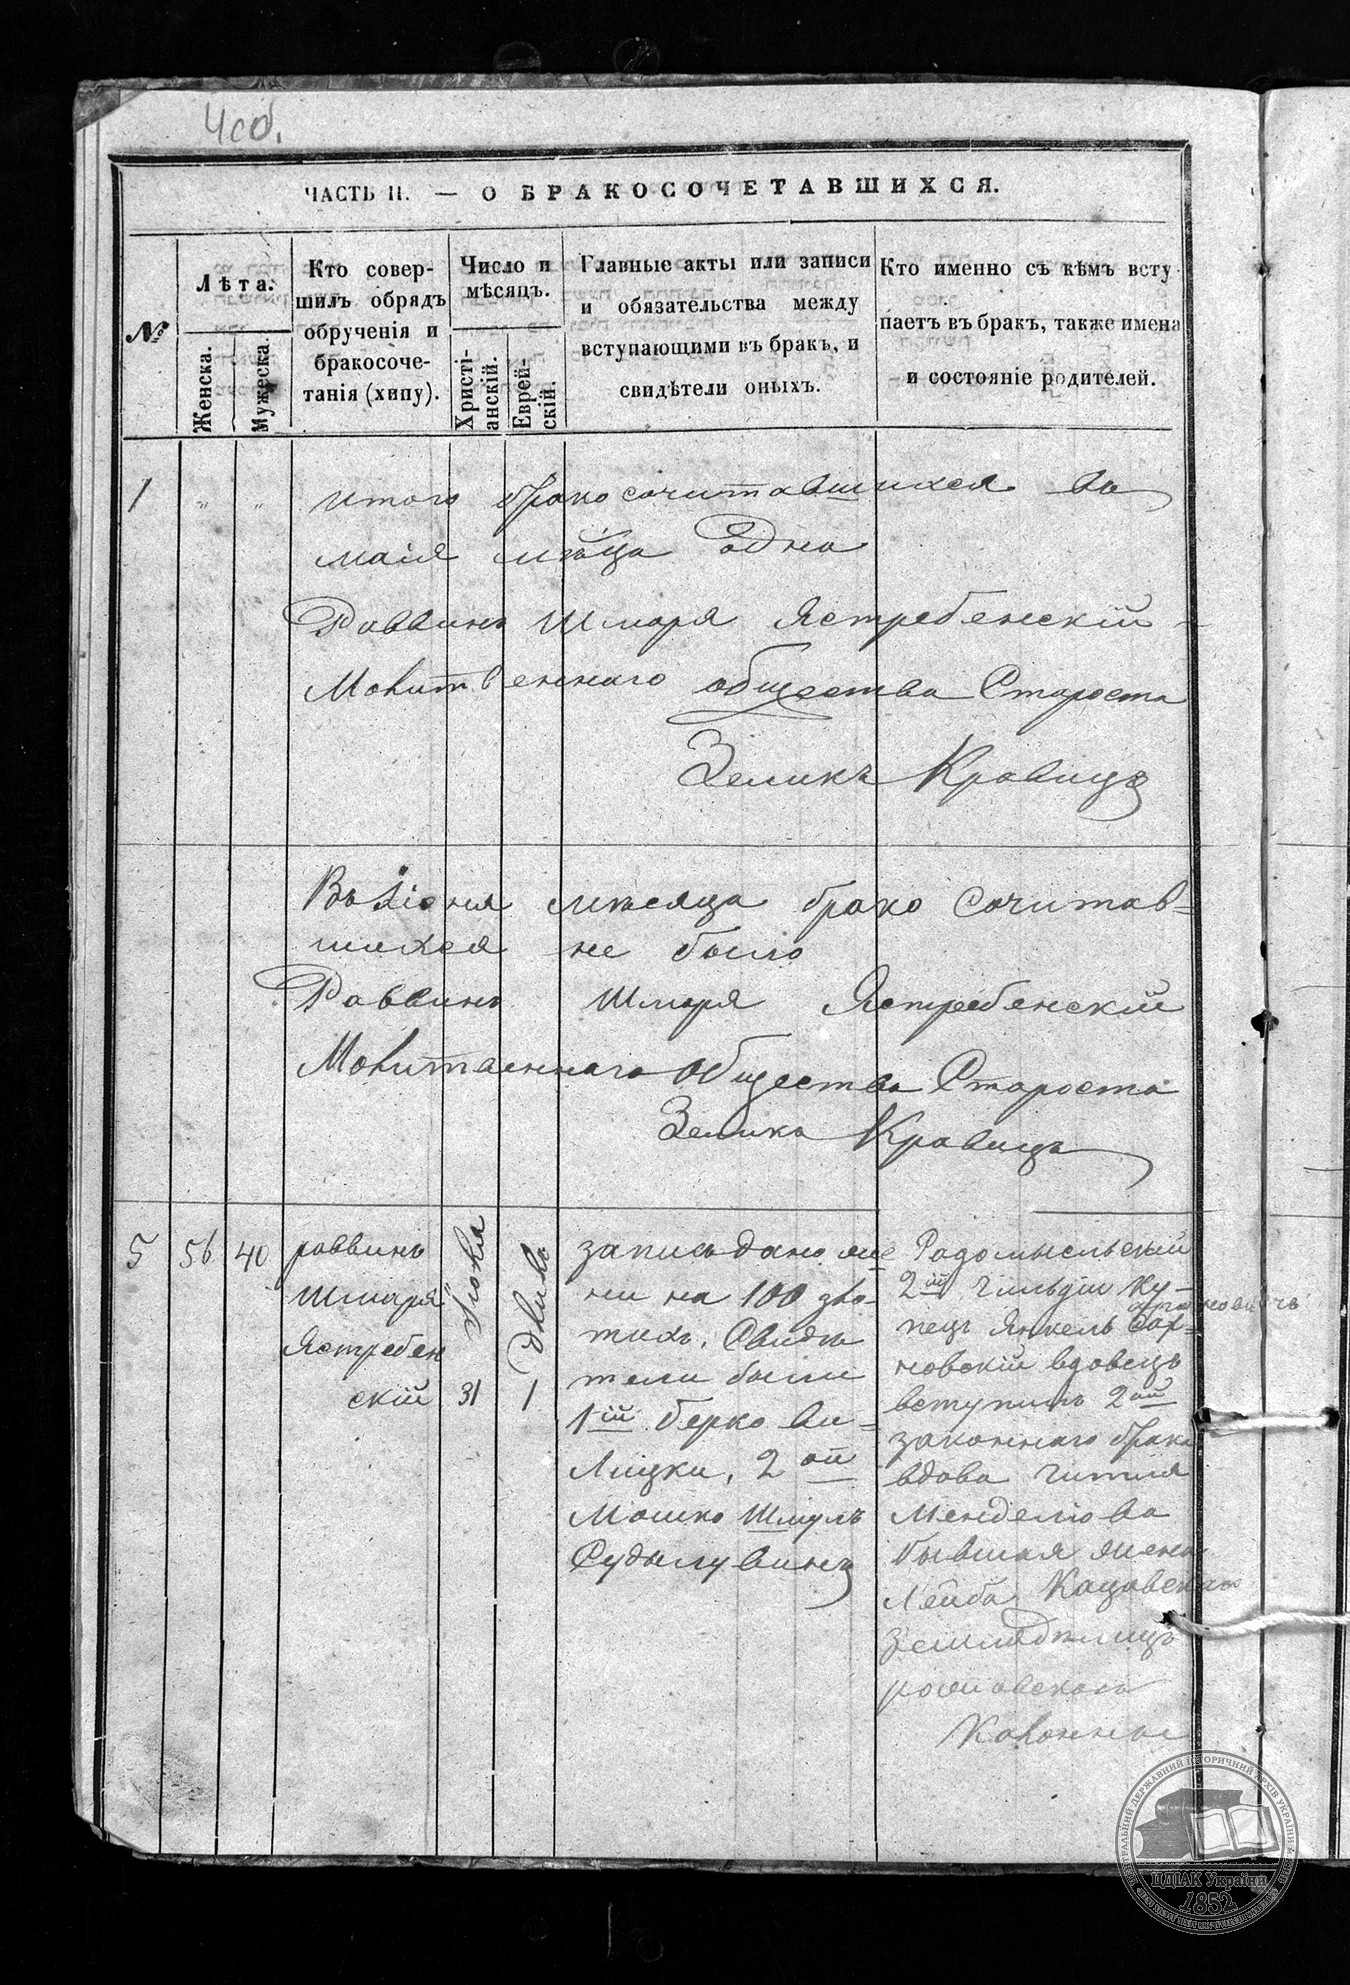 4 об.
ЧАСТЬ II. — О БРАКОСОЧЕТАВШИХСЯ.
№
Лѣта.
Женска.
Мужеска.
Кто совер-
шилъ обрядъ
обрученія и
бракосоче-
танія (хипу).
Число и
мѣсяцъ.
Христі-
анскій.
Еврей-
скій.
Главные акты или записи
и обязательства между
вступающими въ бракъ, и
свидѣтели оныхъ.
Кто именно съ кѣмъ всту
паетъ въ бракъ, также имена
и состояніе родителей.
1 " " итого бракосочитавшихся во
маія мѣца одна
Раввинъ Шмаря Ястребенскій
Молитвеннаго общества Староста
Зеликъ Кравицъ
Въ Іюня мѣсяца брако сочитав=
шихся не было
Раввинъ Шмаря Ястребенскій
Молитвеннаго Общества Староста
Зелико Кравицъ
5
56
40
раввинъ
Шмаря
Ястребен
скій
Іюля
31
1
запись дано
ни на 100 зло-
тихъ, Свидѣ
тели были
1ій Берко Ви=
лицки, 2ой
Мошко Шмуль
Судылувинъ
Радомысльскій
2ій гильдіи ку-
пецъ Янкель
новскій вдовецъ
вступилъ 2ой
законнаго брака
вдова Читля
Менделіова
бывшая жена
Лейба
Колонныи
ЦЕНТРАЛЬНИЙ ДЕРЖАВНИЙ ІСТОРИЧНИЙ АРХІВ УКРАЇНИ
ЦДІАК України
1852